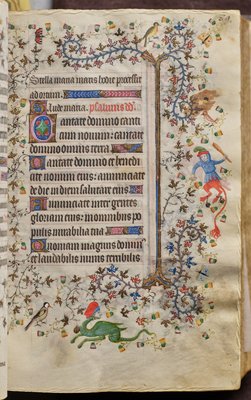 Stella maria maris hodie processit
ad ortum. Aue maria. psalmus dd.
Cantate domino canti
cum nouum: cantate
domino omnis terra
Cantate domino et benedi
cite nomini eius: annunciate
de die in diem salutare eius
Annunciate inter gentes
gloriam eius: in omnibus po
pulis mirabilia eius
Quoniam magnus dominus
et laudabilis nimis terribilis